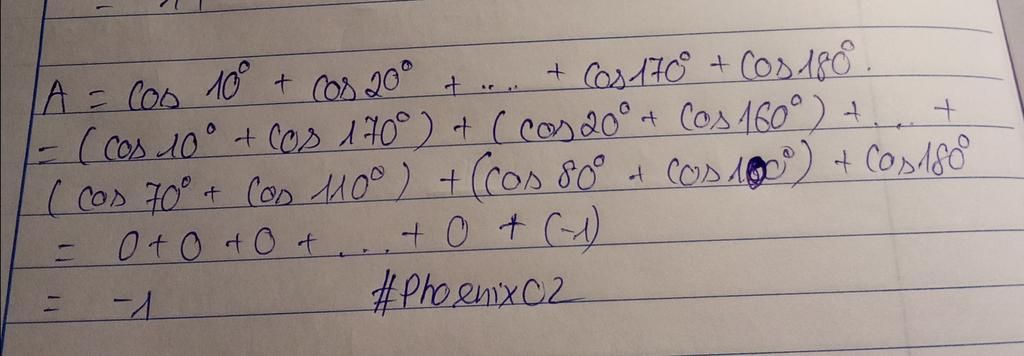 A = cos 10° + cos 20° + .... + cos 170° + cos 180°.
= (cos 10° + cos 170°) + (cos 20° + cos 160°) + .... +
(cos 70° + cos 110°) + (cos 80° + cos 100°) + cos 180°
= 0 + 0 + 0 + .... + 0 + (-1)
= -1 #Phoenix02